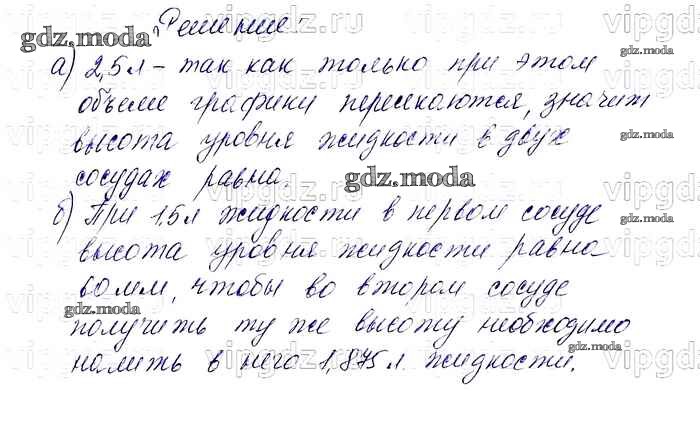 Решение:
а) 2,5 л – так как только при этом
объеме графики пересекаются, значит
высота уровня жидкости в двух
сосудах равна.
б) При 1,5 л жидкости в первом сосуде
высота уровня жидкости равна
60 мм, чтобы во втором сосуде
получить ту же высоту необходимо
налить в него 1,875 л жидкости.
gdz.moda
gdz.moda
gdz.moda
gdz.moda
gdz.moda
gdz.moda
gdz.moda
vipgdz.ru